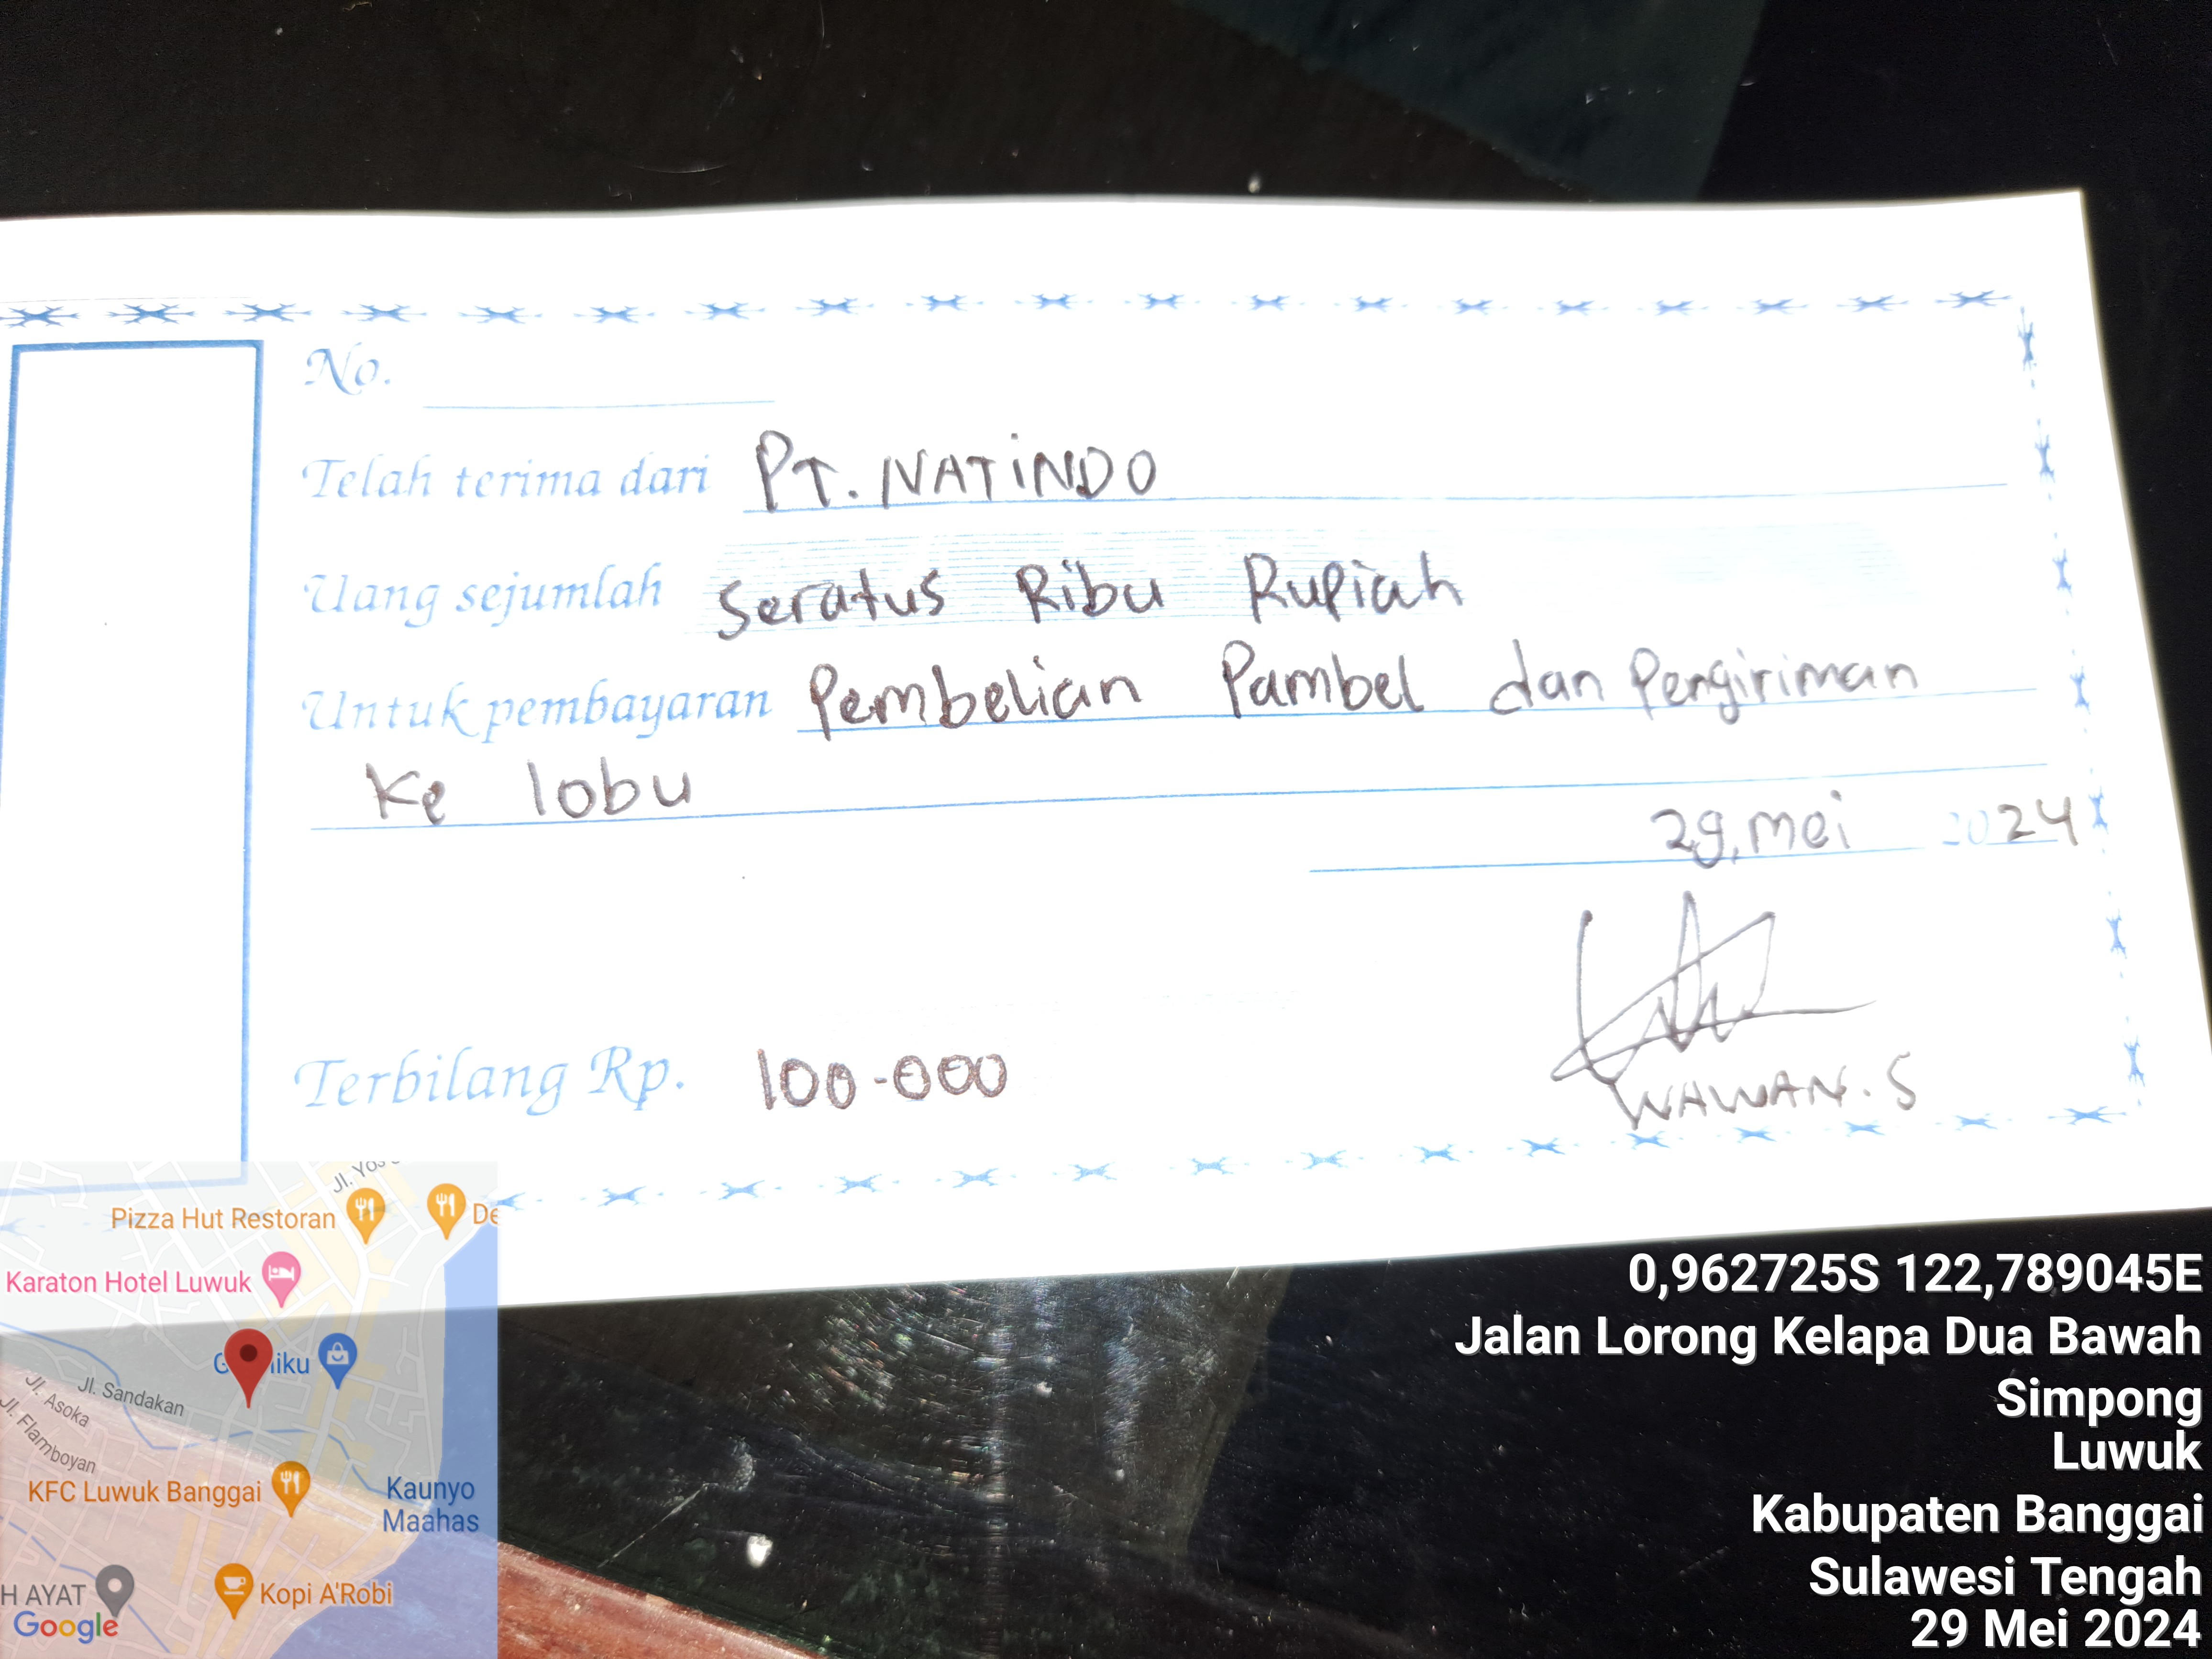 No.
Telah terima dari PT. NATINDO
Uang sejumlah Seratus Ribu Rupiah
Untuk pembayaran Pembelian Pambel dan Pengiriman
Ke lobu
29, mei 2024
Terbilang Rp. 100-000
WAWAN. S
Jl. Yos
Pizza Hut Restoran
De
Karaton Hotel Luwuk
G iku
Jl. Sandakan
Jl. Asoka
Jl. Flamboyan
KFC Luwuk Banggai
Kaunyo
Maahas
H AYAT
Kopi A'Robi
Google
0,962725S 122,789045E
Jalan Lorong Kelapa Dua Bawah
Simpong
Luwuk
Kabupaten Banggai
Sulawesi Tengah
29 Mei 2024